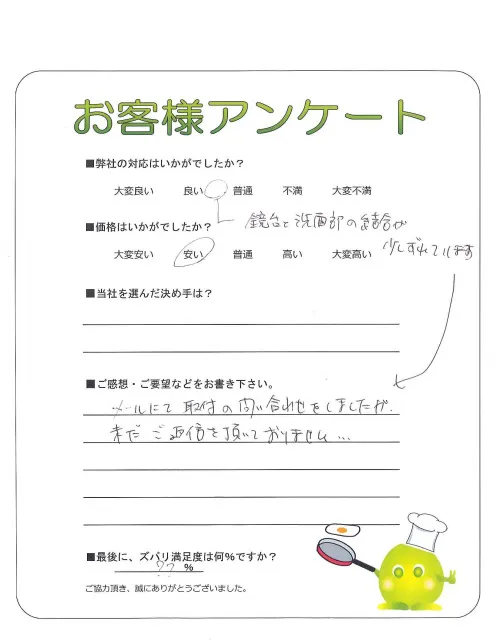 お客様アンケート
■弊社の対応はいかがでしたか?
大変良い 良い 普通 不満 大変不満
鏡台と洗面部の結合が
■価格はいかがでしたか?
少しずれています
大変安い 安い 普通 高い 大変高い
■当社を選んだ決め手は?
■ご感想・ご要望などをお書き下さい。
メールにて取付の問い合わせをしましたが、
未だご返信を頂いておりません...
■最後に、ズバリ満足度は何%ですか?
?? %
ご協力頂き、誠にありがとうございました。